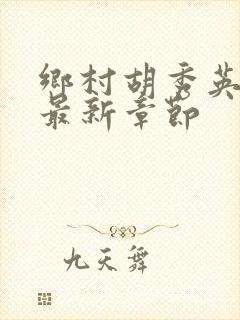 鄉村胡秀英
最新章節
九天舞